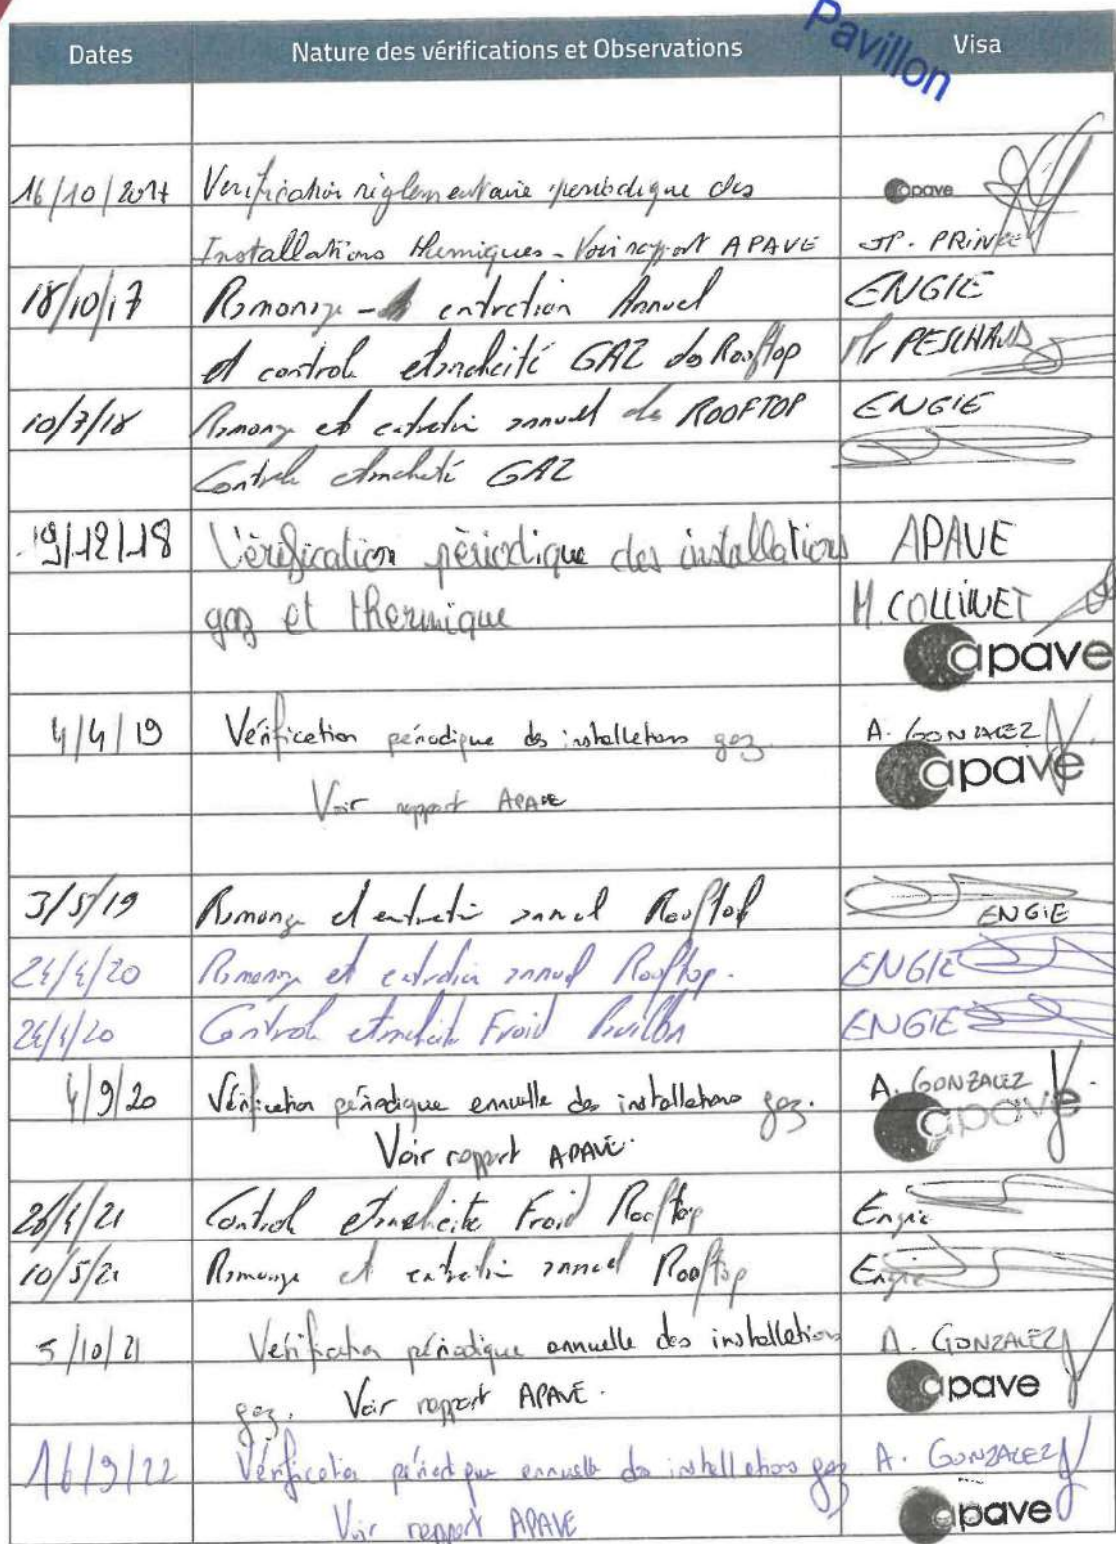 Pavillon
Dates Nature des vérifications et Observations Visa
16/10/2017 Verification réglementaire periodique des apave
Installations thermiques - Voir rapport APAVE JP. PRINCE
18/10/17 Ramonage - entretien Annuel ENGIE
et control etancheité GAZ du Rooftop Mr PESCHAUD
10/7/18 Ramonage et entretien annuel du ROOFTOP ENGIE
Controle etancheité GAZ
19/12/18 Vérification périodique des installations APAVE
gaz et thermique M. COLLINET
apave
4/4/19 Vérification périodique des installations gaz. A. GONZALEZ
apave
Voir rapport APAVE
3/5/19 Ramonage et entretien annuel Rooftop ENGIE
24/4/20 Ramonage et entretien annuel Rooftop. ENGIE
24/4/20 Control etancheité Froid Pavillon ENGIE
4/9/20 Vérification périodique annuelle des installations gaz. A. GONZALEZ
apave
Voir rapport APAVE.
28/4/21 Control etancheite Froid Rooftop Engie
10/5/21 Ramonage et entretien annuel Rooftop Engie
5/10/21 Vérification périodique annuelle des installations A. GONZALEZ
gaz. Voir rapport APAVE. apave
16/9/22 Vérification périodique annuelle des installations gaz A. GONZALEZ
Voir rapport APAVE apave